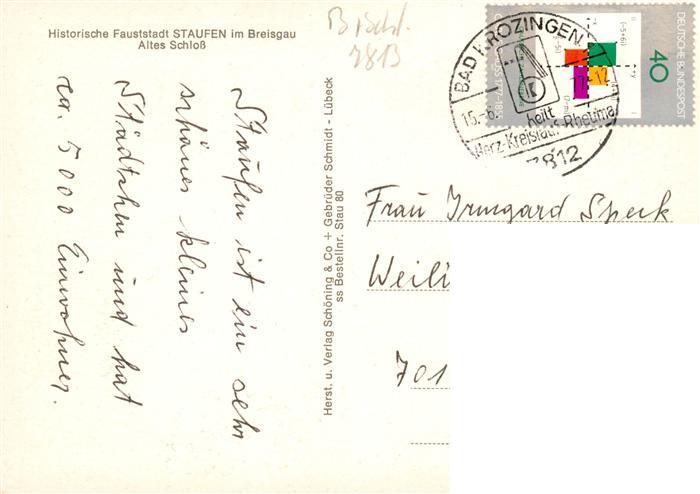 Historische Fauststadt STAUFEN im Breisgau
Altes Schloß
Staufen ist ein sehr
schönes kleines
Städtchen und hat
ca. 5000 Einwohner.
Herst. u. Verlag Schöning & Co + Gebrüder Schmidt - Lübeck
ss Bestellnr. Stau 80
7813
BAD KROZINGEN
heilt
Herz-Kreislauf-Rheuma
7812
DEUTSCHE BUNDESPOST
40
Frau Irmgard Speck
Weili
701